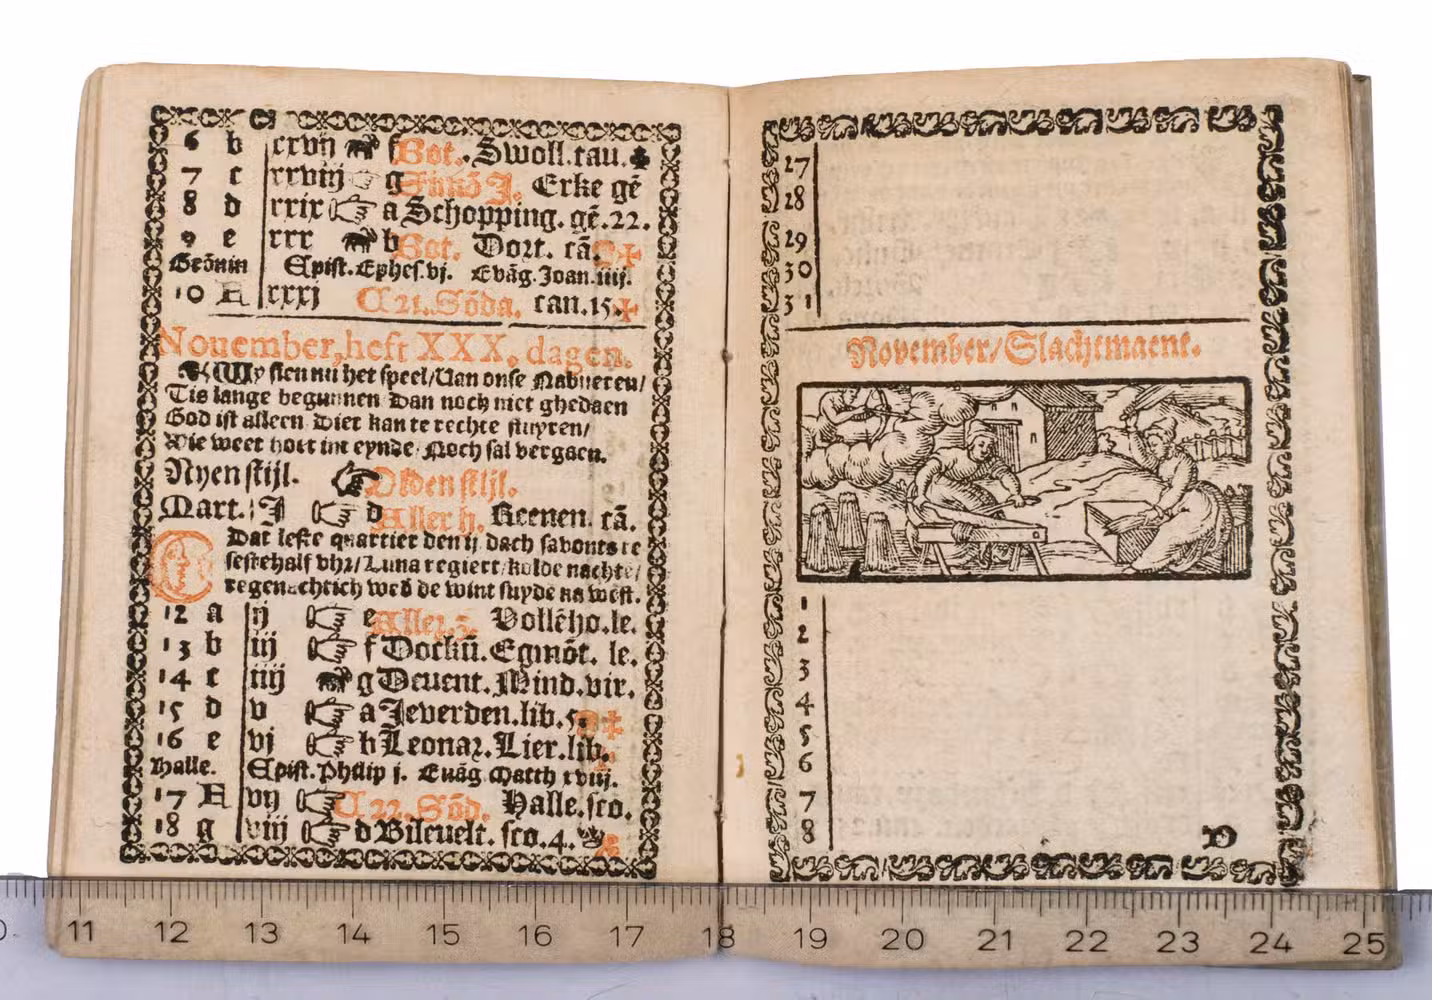 6 b xxvij f Bot. Swoll. tau.
7 c xxviij g Simõ J. Erke gẽ
8 d xxix a Schopping. gẽ. 22.
9 e xxx b Bot. Dort. cã.
Grõnin Epist. Ephes. vj. Evãg. Joan. iiij.
10 A xxxj C 21. Sõda. can. 15.
November, heft XXX. dagen.
Wy sien nu het speel/Van onse Nabueren/
Tis lange begunnen Dan noch niet ghedaen
God ist alleen Diet kan te rechte stuyren/
Die weet hoet int eynde/Noch sal vergaen.
Nyen stijl. Olden stijl.
Mart. J d Aller h. Keenen. cã.
Dat leste quartier den ij dach savonts te
sestehalf vhr/Luna regiert/kolde nachte/
regenachtich wed de wint suyde na west.
12 a ij e Aller. z. Vollẽho. le.
13 b iij f Dockũ. Egmõt. le.
14 c iiij g Devent. Mind. vir.
15 d v a Jeverden. lib. 5.
16 e vj b Leonar. Lier. lib.
Halle. Epist. Philip j. Euãg Matth xviij.
17 A vij C 22. Sõd. Halle. sco.
18 g viij d Bilevelt. sco. 4.
27
28
29
30
31
November/Slachtmaent.
1
2
3
4
5
6
7
8
D
11 12 13 14 15 16 17 18 19 20 21 22 23 24 25